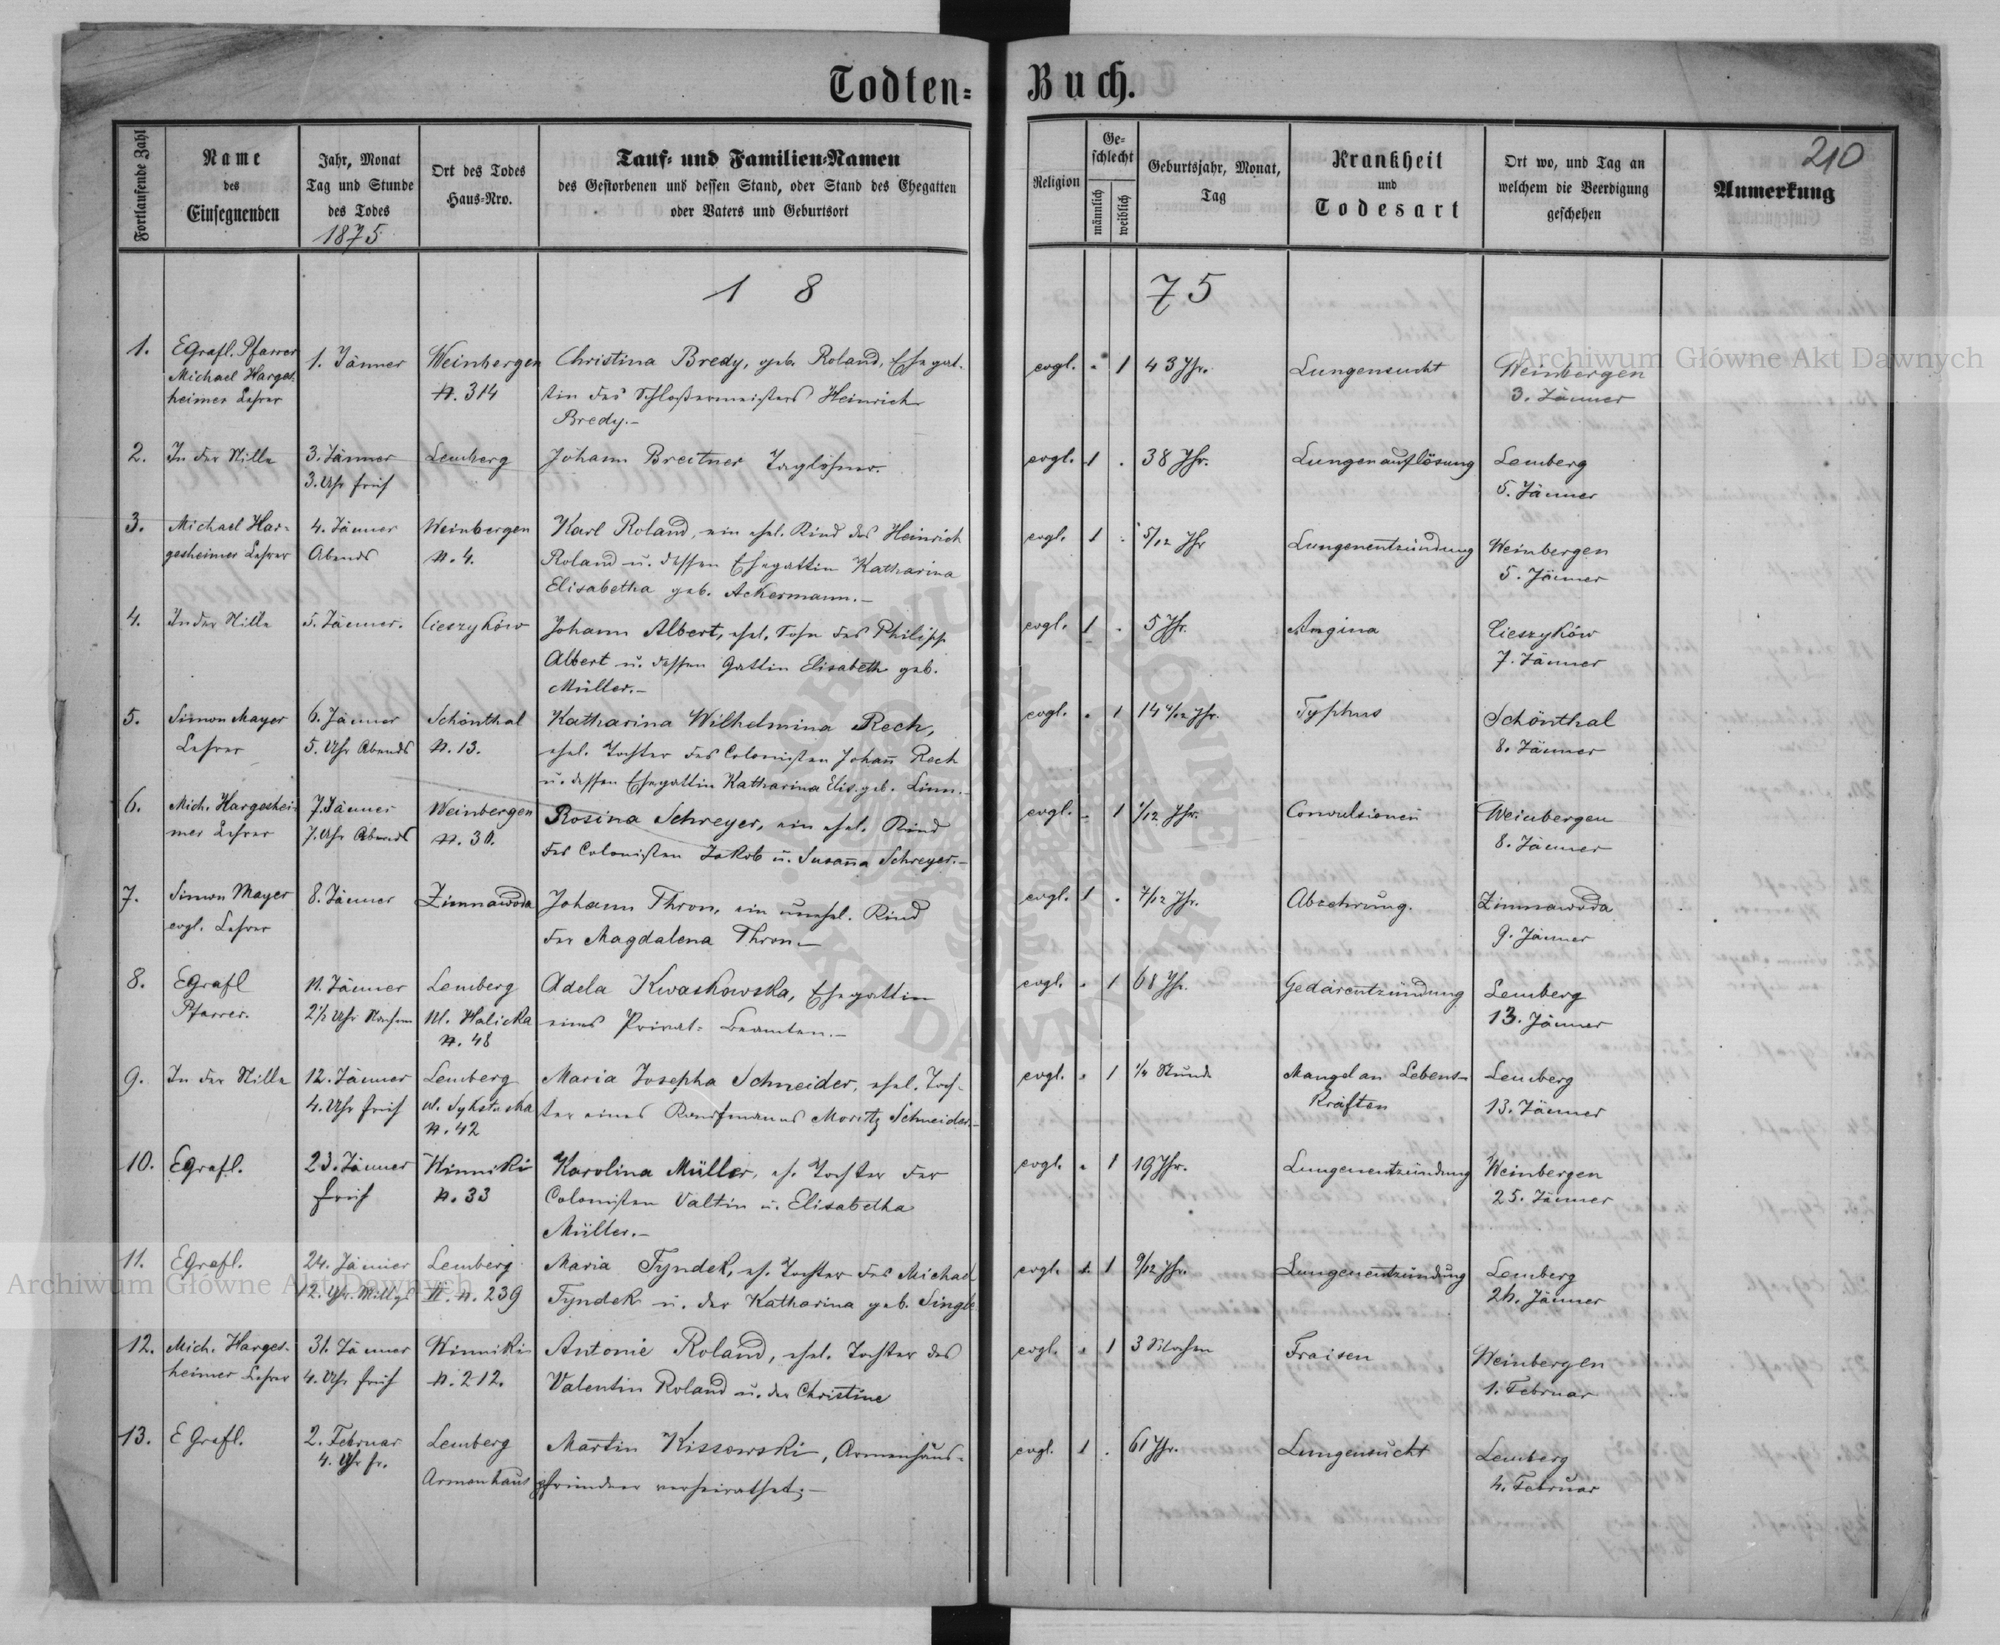 Todten=
Buch.
210
Fortlaufende Zahl
Name
des
Einsegnenden
Jahr, Monat
Tag und Stunde
des Todes
1875
Ort des Todes
Haus=Nro.
Tauf= und Familien=Namen
des Gestorbenen und dessen Stand, oder Stand des Ehegatten
oder Vaters und Geburtsort
Religion
Ge=
schlecht
männlich
weiblich
Geburtsjahr, Monat,
Tag
Krankheit
und
Todesart
Ort wo, und Tag an
welchem die Beerdigung
geschehen
Anmerkung
1 8
75
1. EGrafl. Pfarrer 1. Jänner Weinbergen Christina Bredy, geb. Roland, Ehegat- evgl. 1 43 Jhr. Lungensucht Weinbergen
Michael Harges- N. 314 tin des Schloßermeisters Heinrich 3. Jänner
heimer Lehrer Bredy.-
2. In der Stille 3. Jänner Lemberg Johann Breitner Taglöhner evgl. 1 . 38 Jhr. Lungenauflösung Lemberg
3. Uhr früh 5. Jänner
3. Michael Har- 4. Jänner Weinbergen Karl Roland, ein ehel. Kind des Heinrich evgl. 1 . 5/12 Jhr Lungenentzündung Weinbergen
gesheimer Lehrer Abends N. 4. Roland u. dessen Ehegattin Katharina 5. Jänner
Elisabetha geb. Ackermann.-
4. In der Stille 5. Jänner. Cieszyków Johann Albert, ehel. Sohn des Philipp evgl. 1 . 5 Jhr. Angina Cieszyków
Albert u. dessen Gattin Elisabeth geb. 7. Jänner
Müller.-
5. Simon Mayer 6. Jänner Schönthal Katharina Wilhelmina Rech, evgl. . 1 14 Jhr. Typhus Schönthal
Lehrer 5. Uhr Abends N. 13. ehel. Tochter des Colonisten Johann Rech 8. Jänner
u. dessen Ehegattin Katharina Elis. geb. Linn.-
6. Mich. Hargeshei- 7. Jänner Weinbergen Rosina Schreyer, ein ehel. Kind evgl. - 1 1/12 Jhr. Convulsionen Weinbergen
mer Lehrer 7. Uhr Abends N. 36. des Colonisten Jakob u. Susanna Schreyer.- 8. Jänner
7. Simon Mayer 8. Jänner Zimnawoda Johann Thron, ein unehel. Kind evgl. 1 . 7/12 Jhr. Abzehrung. Zimnawoda
evgl. Lehrer der Magdalena Thron.- 9. Jänner
8. EGrafl 11. Jänner Lemberg Adela Kwaskowska, Ehegattin evgl. . 1 68 Jhr. Gedärentzündung Lemberg
Pfarrer. 2½ Uhr Nachm ul. Halicka eines Privat-Beamten.- 13. Jänner
N. 48
9. In der Stille 12. Jänner Lemberg Maria Josepha Schneider, ehel. Toch- evgl. . 1 ¼ Stunde Mangel an Lebens- Lemberg
4. Uhr früh ul. Sykstuska ter eines Kaufmanns Moritz Schneider.- kräften 13. Jänner
N. 42
10. EGrafl. 23. Jänner Winniki Karolina Müller, eh. Tochter der evgl. . 1 19 Jhr. Lungenentzündung Weinbergen
früh N. 33 Colonisten Valtin u. Elisabetha 25. Jänner
Müller.-
11. EGrafl. 24. Jänner Lemberg Maria Tyndek, eh. Tochter des Michael evgl. 1 9/12 Jhr. Lungenentzündung Lemberg
12. Uhr Mittgs II. N. 239 Tyndek u. der Katharina geb. Single 26. Jänner
12. Mich. Harges- 31. Jänner Winniki Antonie Roland, ehel. Tochter des evgl. . 1 3 Wochen Fraisen Weinbergen
heimer Lehrer 4. Uhr früh N. 212. Valentin Roland u. der Christine 1. Februar
13. EGrafl. 2. Februar Lemberg Martin Kissowski, Armenhaus- evgl. 1 . 61 Jhr. Lungensucht Lemberg
4. Uhr fr. Armenhaus pfründner verheirathet;- 4. Februar
Archiwum Główne Akt Dawnych
Archiwum Główne Akt Dawnych
ARCHIWUM GŁÓWNE
AKT DAWNYCH